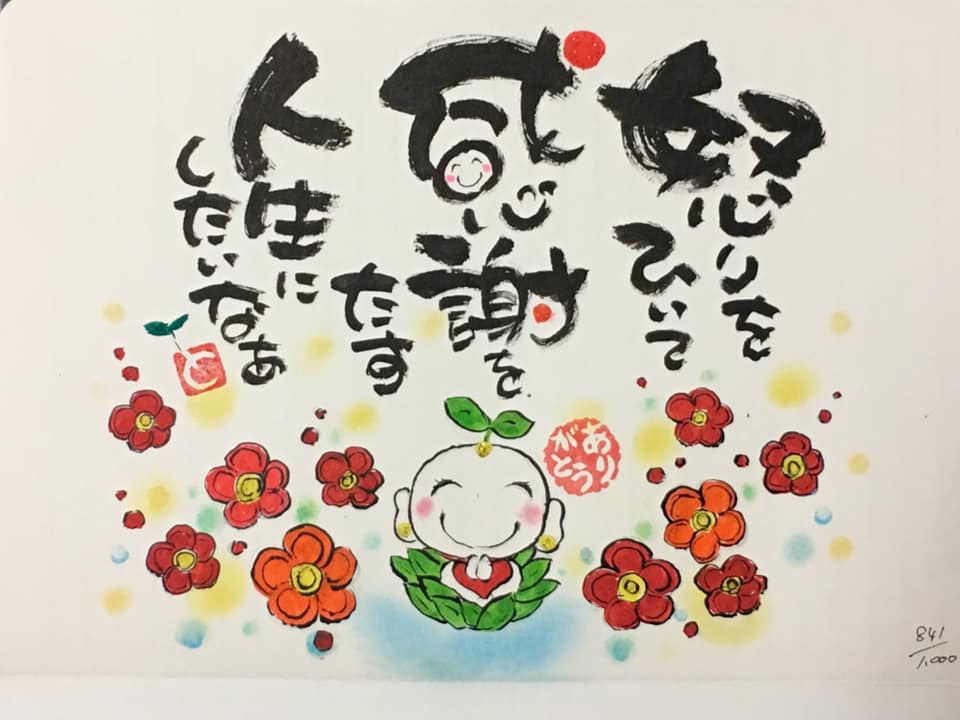 怒りを
ひいて
感謝を
たす
人生に
したいなぁ
と
ありがとう
841/1,000